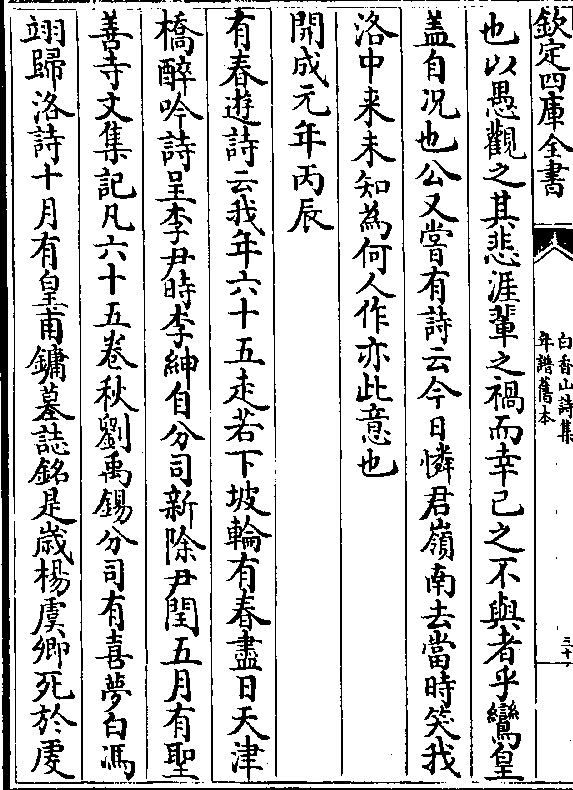 欽定四庫全書
白香山詩集
年譜舊本
三十
也以愚觀之其悲涯輩之禍而幸己之不與者乎鸞皇
盖自况也公又嘗有詩云今日憐君嶺南去當時笑我
洛中来未知為何人作亦此意也
開成元年丙辰
有春遊詩云我年六十五走若下坡輪有春盡日天津
橋醉吟詩呈李尹時李紳自分司新除尹閏五月有聖
善寺文集記凡六十五卷秋劉禹錫分司有喜夢白馮
翊歸洛詩十月有皇甫鏞墓誌銘是歲楊虞卿死於䖍